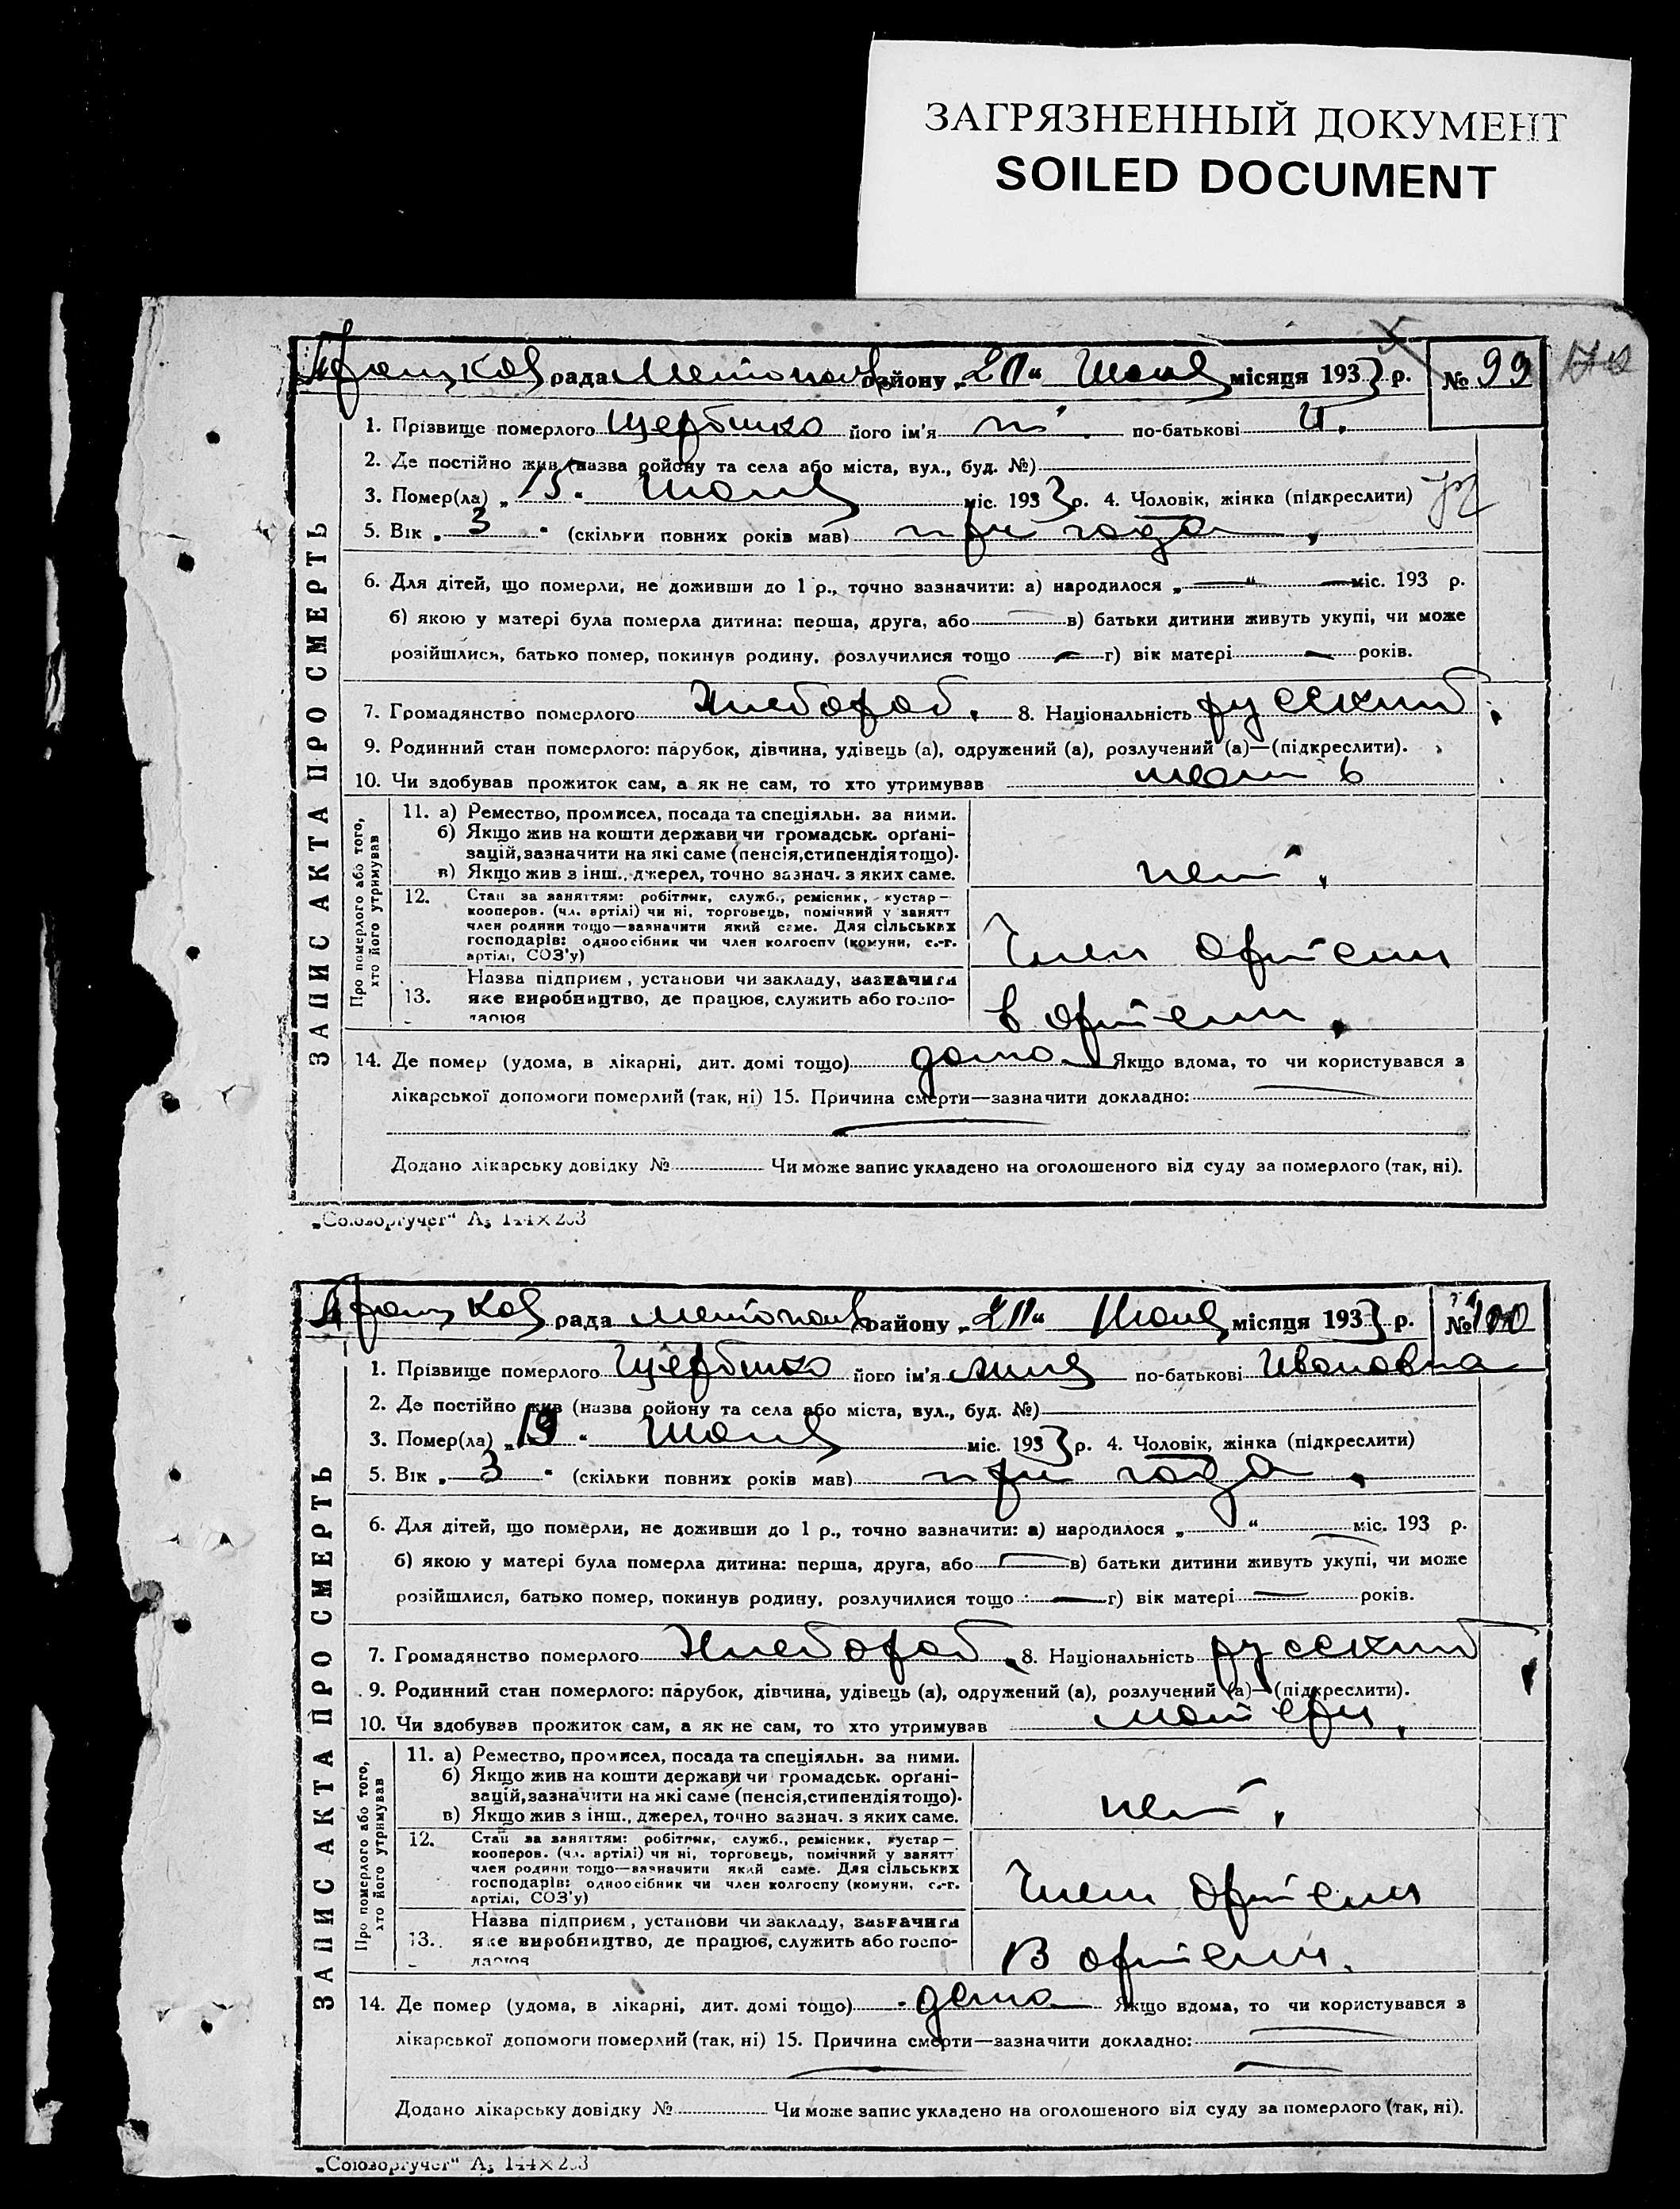 ЗАГРЯЗНЕННЫЙ ДОКУМЕНТ
SOILED DOCUMENT
рада району місяця 1933 р. № 99
1. Прізвище померлого його ім'я по-батькові И.
2. Де постійно жив (назва району та села або міста, вул., буд. №)
3. Помер(ла) „15“ міс. 1933 р. 4. Чоловік, жінка (підкреслити)
5. Вік „3“ (скільки повних років мав) три года
6. Для дітей, що померли, не доживши до 1 р., точно зазначити: а) народилося „—“ — міс. 193 р.
б) якою у матері була померла дитина: перша, друга, або — в) батьки дитини живуть укупі, чи може
розійшлися, батько помер, покинув родину, розлучилися тощо — г) вік матері — років.
7. Громадянство померлого Хлебороб. 8. Національність русский
9. Родинний стан померлого: парубок, дівчина, удівець (а), одружений (а), розлучений (а)—(підкреслити).
10. Чи здобував прожиток сам, а як не сам, то хто утримував мать
ЗАПИС АКТА ПРО СМЕРТЬ
Про померлого або того, хто його утримував
11. а) Ремество, промисел, посада та спеціяльн. за ними.
б) Якщо жив на кошти держави чи громадськ. орґані-
зацій, зазначити на які саме (пенсія, стипендія тощо).
в) Якщо жив з інш., джерел, точно зазнач. з яких саме.
нет.
12. Стан за заняттям: робітник, служб., ремісник, кустар—
кооперов. (чл. артілі) чи ні, торговець, помічний у занятт
член родини тощо—зазначити який саме. Для сільських
господарів: одноосібник чи член колгоспу (комуни, с.-г.
артілі, СОЗ'у)
Член артели
13. Назва підприєм, установи чи закладу, зазначити
яке виробництво, де працює, служить або госпо-
дарює
в артели.
14. Де помер (удома, в лікарні, дит. домі тощо) дома Якщо вдома, то чи користувався з
лікарської допомоги померлий (так, ні) 15. Причина смерти—зазначити докладно: —
Додано лікарську довідку № Чи може запис укладено на оголошеного від суду за померлого (так, ні).
„Союзоргучет“ А₅ 144×203
рада району місяця 1933 р. № 100
1. Прізвище померлого його ім'я по-батькові Ивановна
2. Де постійно жив (назва району та села або міста, вул., буд. №)
3. Помер(ла) „19“ міс. 1933 р. 4. Чоловік, жінка (підкреслити)
5. Вік „3“ (скільки повних років мав) три года
6. Для дітей, що померли, не доживши до 1 р., точно зазначити: а) народилося „ “ — міс. 193 р.
б) якою у матері була померла дитина: перша, друга, або — в) батьки дитини живуть укупі, чи може
розійшлися, батько помер, покинув родину, розлучилися тощо — г) вік матері — років.
7. Громадянство померлого Хлебороб. 8. Національність русский
9. Родинний стан померлого: парубок, дівчина, удівець (а), одружений (а), розлучений (а)—(підкреслити).
10. Чи здобував прожиток сам, а як не сам, то хто утримував матери
ЗАПИС АКТА ПРО СМЕРТЬ
Про померлого або того, хто його утримував
11. а) Ремество, промисел, посада та спеціяльн. за ними.
б) Якщо жив на кошти держави чи громадськ. орґані-
зацій, зазначити на які саме (пенсія, стипендія тощо).
в) Якщо жив з інш., джерел, точно зазнач. з яких саме.
нет.
12. Стан за заняттям: робітник, служб., ремісник, кустар—
кооперов. (чл. артілі) чи ні, торговець, помічний у занятт
член родини тощо—зазначити який саме. Для сільських
господарів: одноосібник чи член колгоспу (комуни, с.-г.
артілі, СОЗ'у)
Член артели
13. Назва підприєм, установи чи закладу, зазначити
яке виробництво, де працює, служить або госпо-
дарює
В артели.
14. Де помер (удома, в лікарні, дит. домі тощо) дома Якщо вдома, то чи користувався з
лікарської допомоги померлий (так, ні) 15. Причина смерти—зазначити докладно: —
Додано лікарську довідку № Чи може запис укладено на оголошеного від суду за померлого (так, ні).
„Союзоргучет“ А₅ 144×203